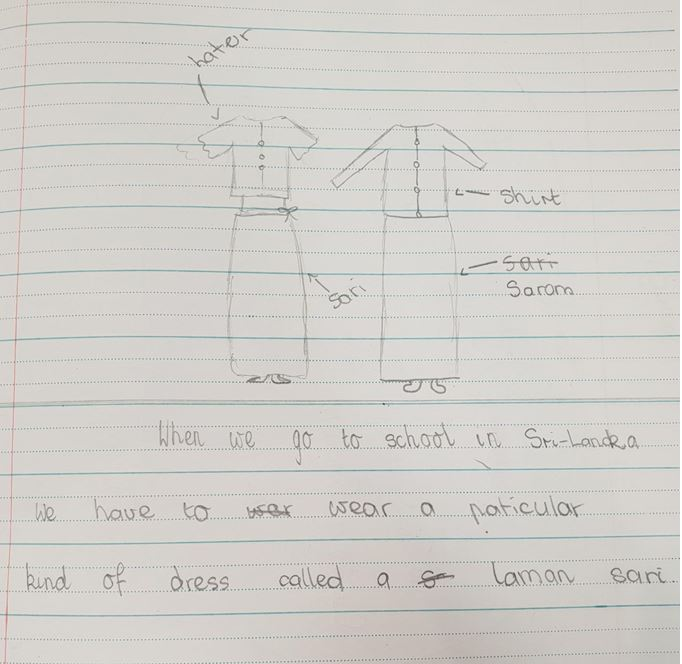 hater
shirt
sari
sari
Sarom
When we go to school in Sri-Lanka
we have to wer wear a paticular
kind of dress called a s laman sari